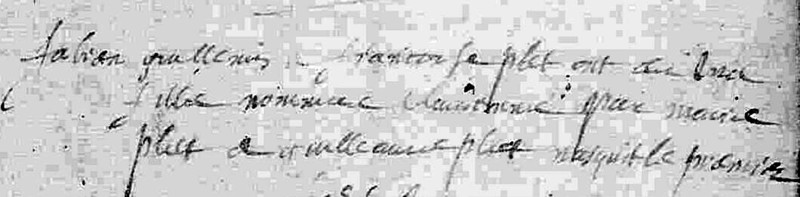 fabien guillemin francoise plet ont eu une
fille nommee par marie
plet a guilleaume plet nasquit le premier